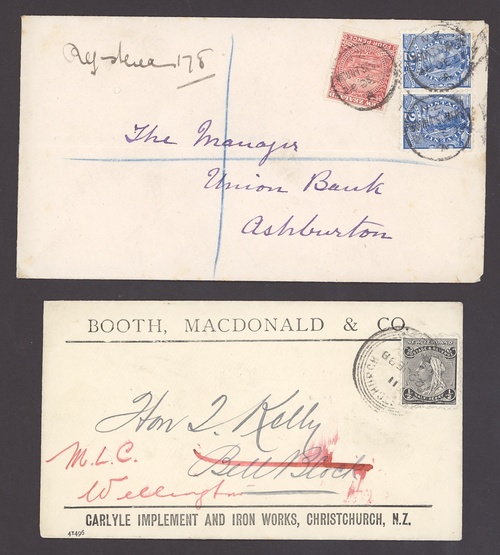 Registered 178
FOUR PENCE
The Manager
Union Bank
Ashburton
BOOTH, MACDONALD & CO.
Hon T. Kelly
M.L.C.
Bell Block
Wellington
CARLYLE IMPLEMENT AND IRON WORKS, CHRISTCHURCH, N.Z.